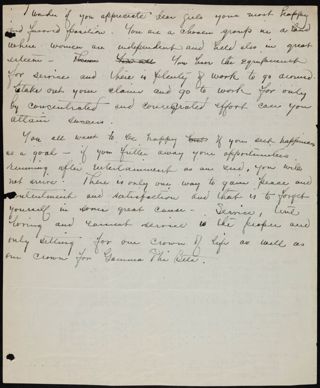 I wonder if you appreciate dear girls your most happy
and favored position. You are a chosen group in a land
where women are independent and held also in great
esteem - You have the equipment
for service and there is plenty of work to go around.
Stake out your claim and go to work for only
by concentrated and consecrated effort can you
attain success.
You all want to be happy but if you seek happiness
as a goal - if you fritter away your opportunities
running after entertainment as an end, you will
not find it. There is only one way to gain peace and
contentment and satisfaction and that is to forget
yourself in some great cause. Service,
loving and earnest service is the proper and
only setting for our crown of life as well as
our crown for Gamma Phi Beta.